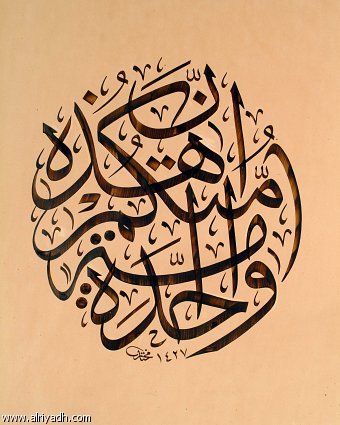 إنّ هذه أمّتكم أمة واحدة
١٤٢٧
www.alriyadh.com